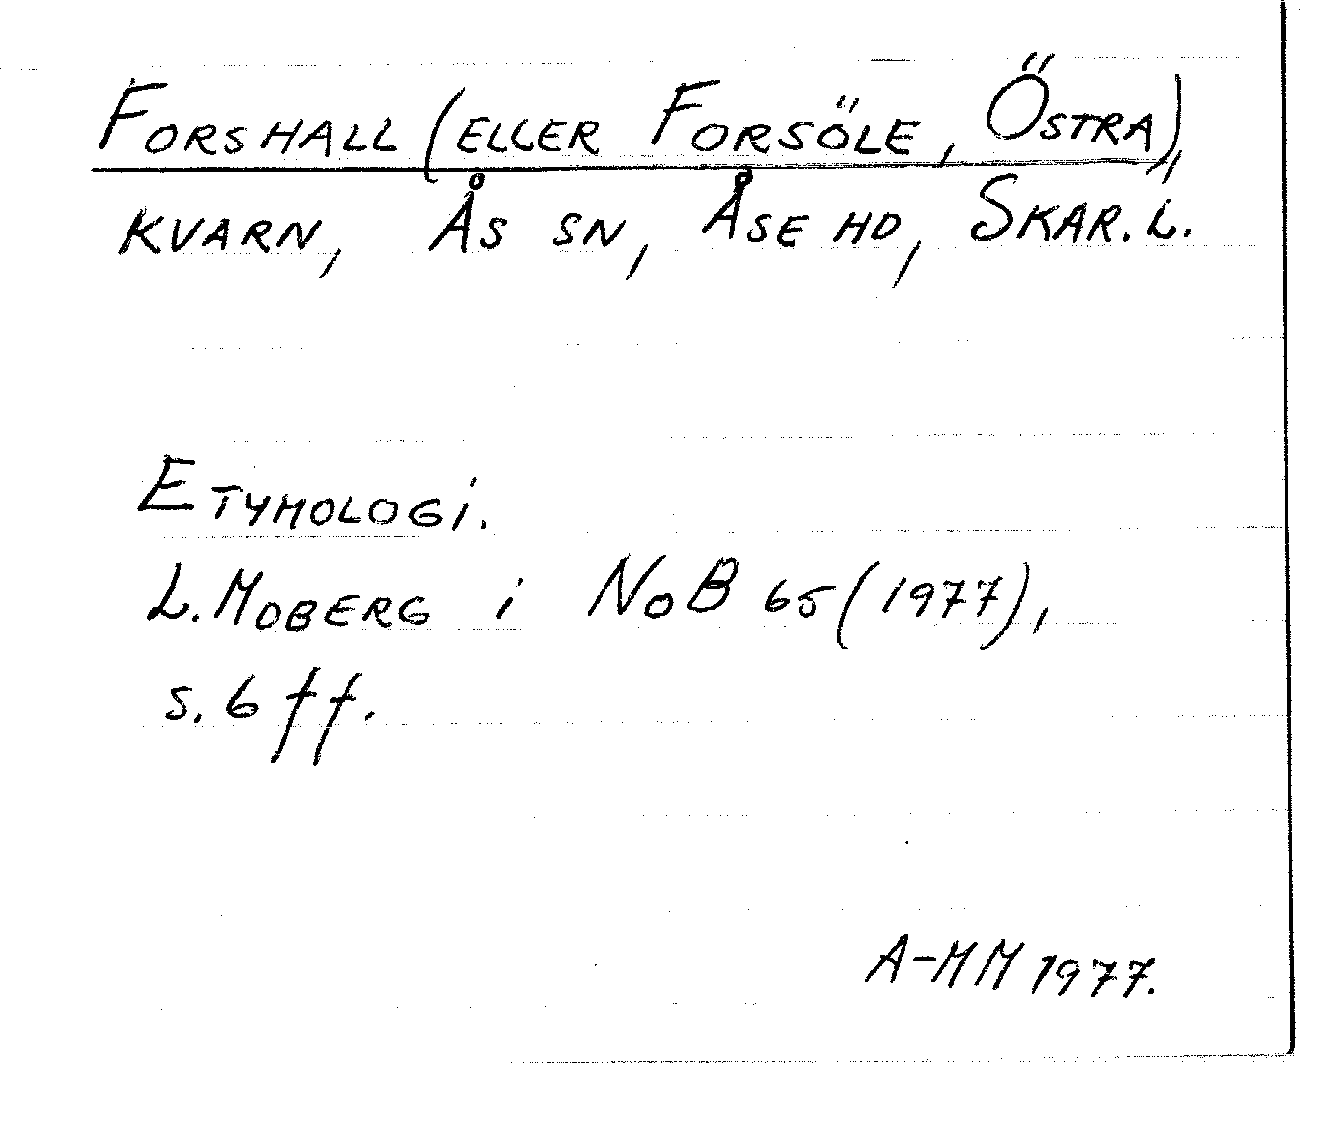 FORSHALL (ELLER FORSÖLE, ÖSTRA),
KVARN, ÅS SN, ÅSE HD, SKAR. L.
ETYMOLOGI.
L. MOBERG i NoB 65 (1977),
s. 6 ff.
A-MM 1977.